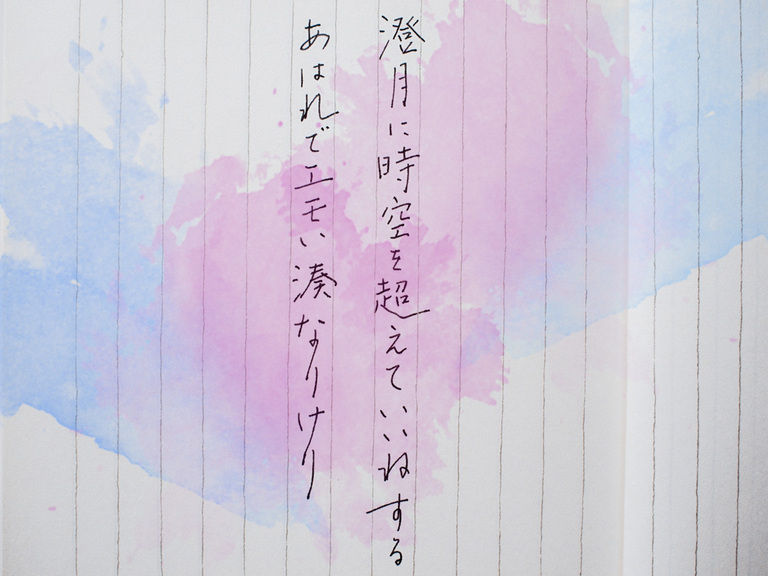 澄月に時空を超えていいねする
あはれでエモい湊なりけり